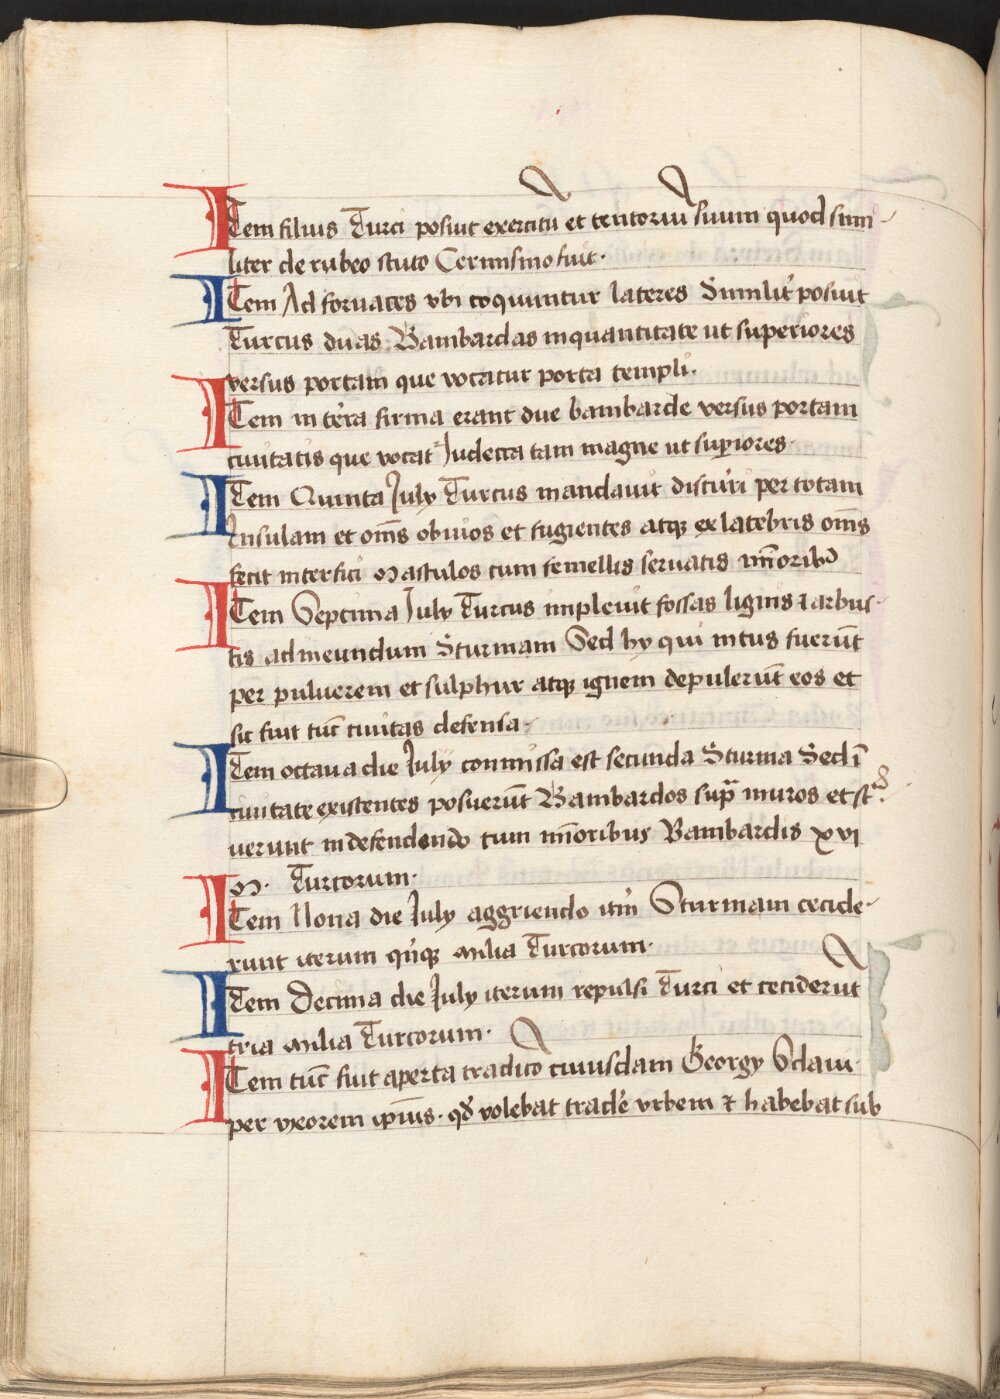 Item filius Turci posiut exercitū et tentoriū suum quod simi
liter de rubeo scuto Cermisino fuit·
Item Ad fornaces vbi coquuntur lateres Similit᷑ posuit
Turcus duas Bambardas in quantitate ut superiores
versus portam que vocatur porta templi·
Item in tēra firma erant due bambarde versus portam
ciuitatis que vocat᷑ Iudecca tam magne ut suꝑiores·
Item Quinta July Turcus mandauit discur̄i per totam
Insulam et om̄s obuios et fugientes atqꝫ ex latebris om̄s
fecit interfici Masculos cum femellis seruatis mīoribꝰ
Item Septima July Turcus impleuit fossas lignis ⁊ arbus
tis ad ineundum Sturmam Sed hy qui intus fuerūt
per puluerem et sulphur atqꝫ ignem depulerūt eos et
sic fuit tūc ciuitas defensa·
Item octaua die July commissa est secunda Sturma Sed ī
ciuitate existentes posuerūt Bambardos supᷓ muros et st
uerunt in defendendo cum mīoribus Bambardis xvi
M· Turcorum·
Item Nona die July aggriendo itm̄ Sturmam cecide
runt iterum qn̄qꝫ milia Turcorum·
Item Decima die July iterum repulsi Turci et ceciderūt
tria milia Turcorum·
Item tūc fuit aperta tradico cuiusdam Georgy Sclaui·
per vxorem ip̄ius· qd̄ volebat trad̄e vrbem ⁊ habebat sub